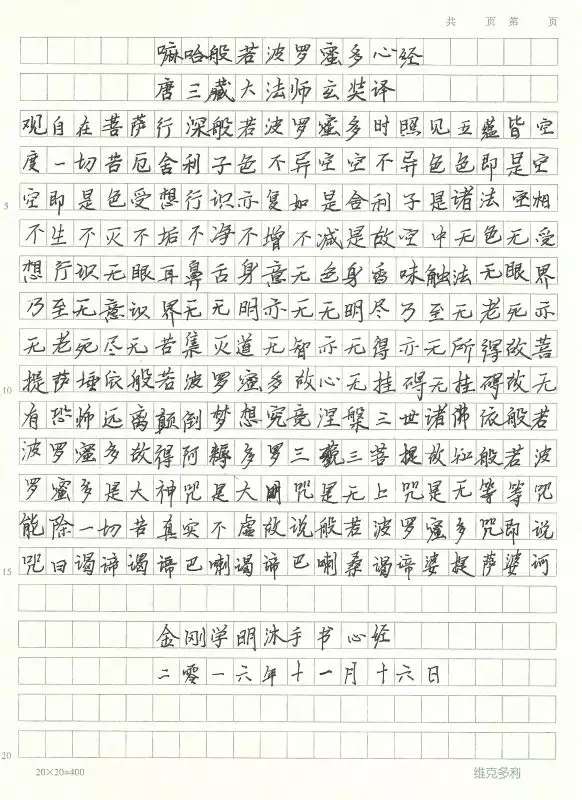 共 页 第 页
嘛哈般若波罗蜜多心经
唐三藏大法师玄奘译
观自在菩萨行深般若波罗蜜多时照见五蕴皆空
度一切苦厄舍利子色不异空空不异色色即是空
5 空即是色受想行识亦复如是舍利子是诸法空相
不生不灭不垢不净不增不减是故空中无色无受
想行识无眼耳鼻舌身意无色身香味触法无眼界
乃至无意识界无无明亦无无明尽乃至无老死亦
无老死尽无苦集灭道无智亦无得亦无所得故菩
10 提萨埵依般若波罗蜜多故心无挂碍无挂碍故无
有恐怖远离颠倒梦想究竟涅槃三世诸佛依般若
波罗蜜多故得阿耨多罗三藐三菩提故知般若波
罗蜜多是大神咒是大明咒是无上咒是无等等咒
能除一切苦真实不虚故说般若波罗蜜多咒即说
15 咒曰谒谛谒谛巴喇谒谛巴喇桑谒谛婆提萨婆诃
金刚学明沐手书心经
二零一六年十一月十六日
20
20×20=400 维克多利